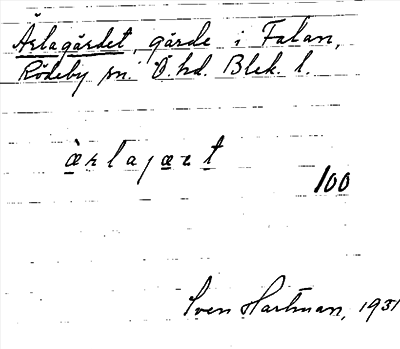 Ärlagärdet, gärde i Falan,
Rödeby sn. Ö. hd. Blek. l.
ærlajæret
100
Sven Hartman, 1931